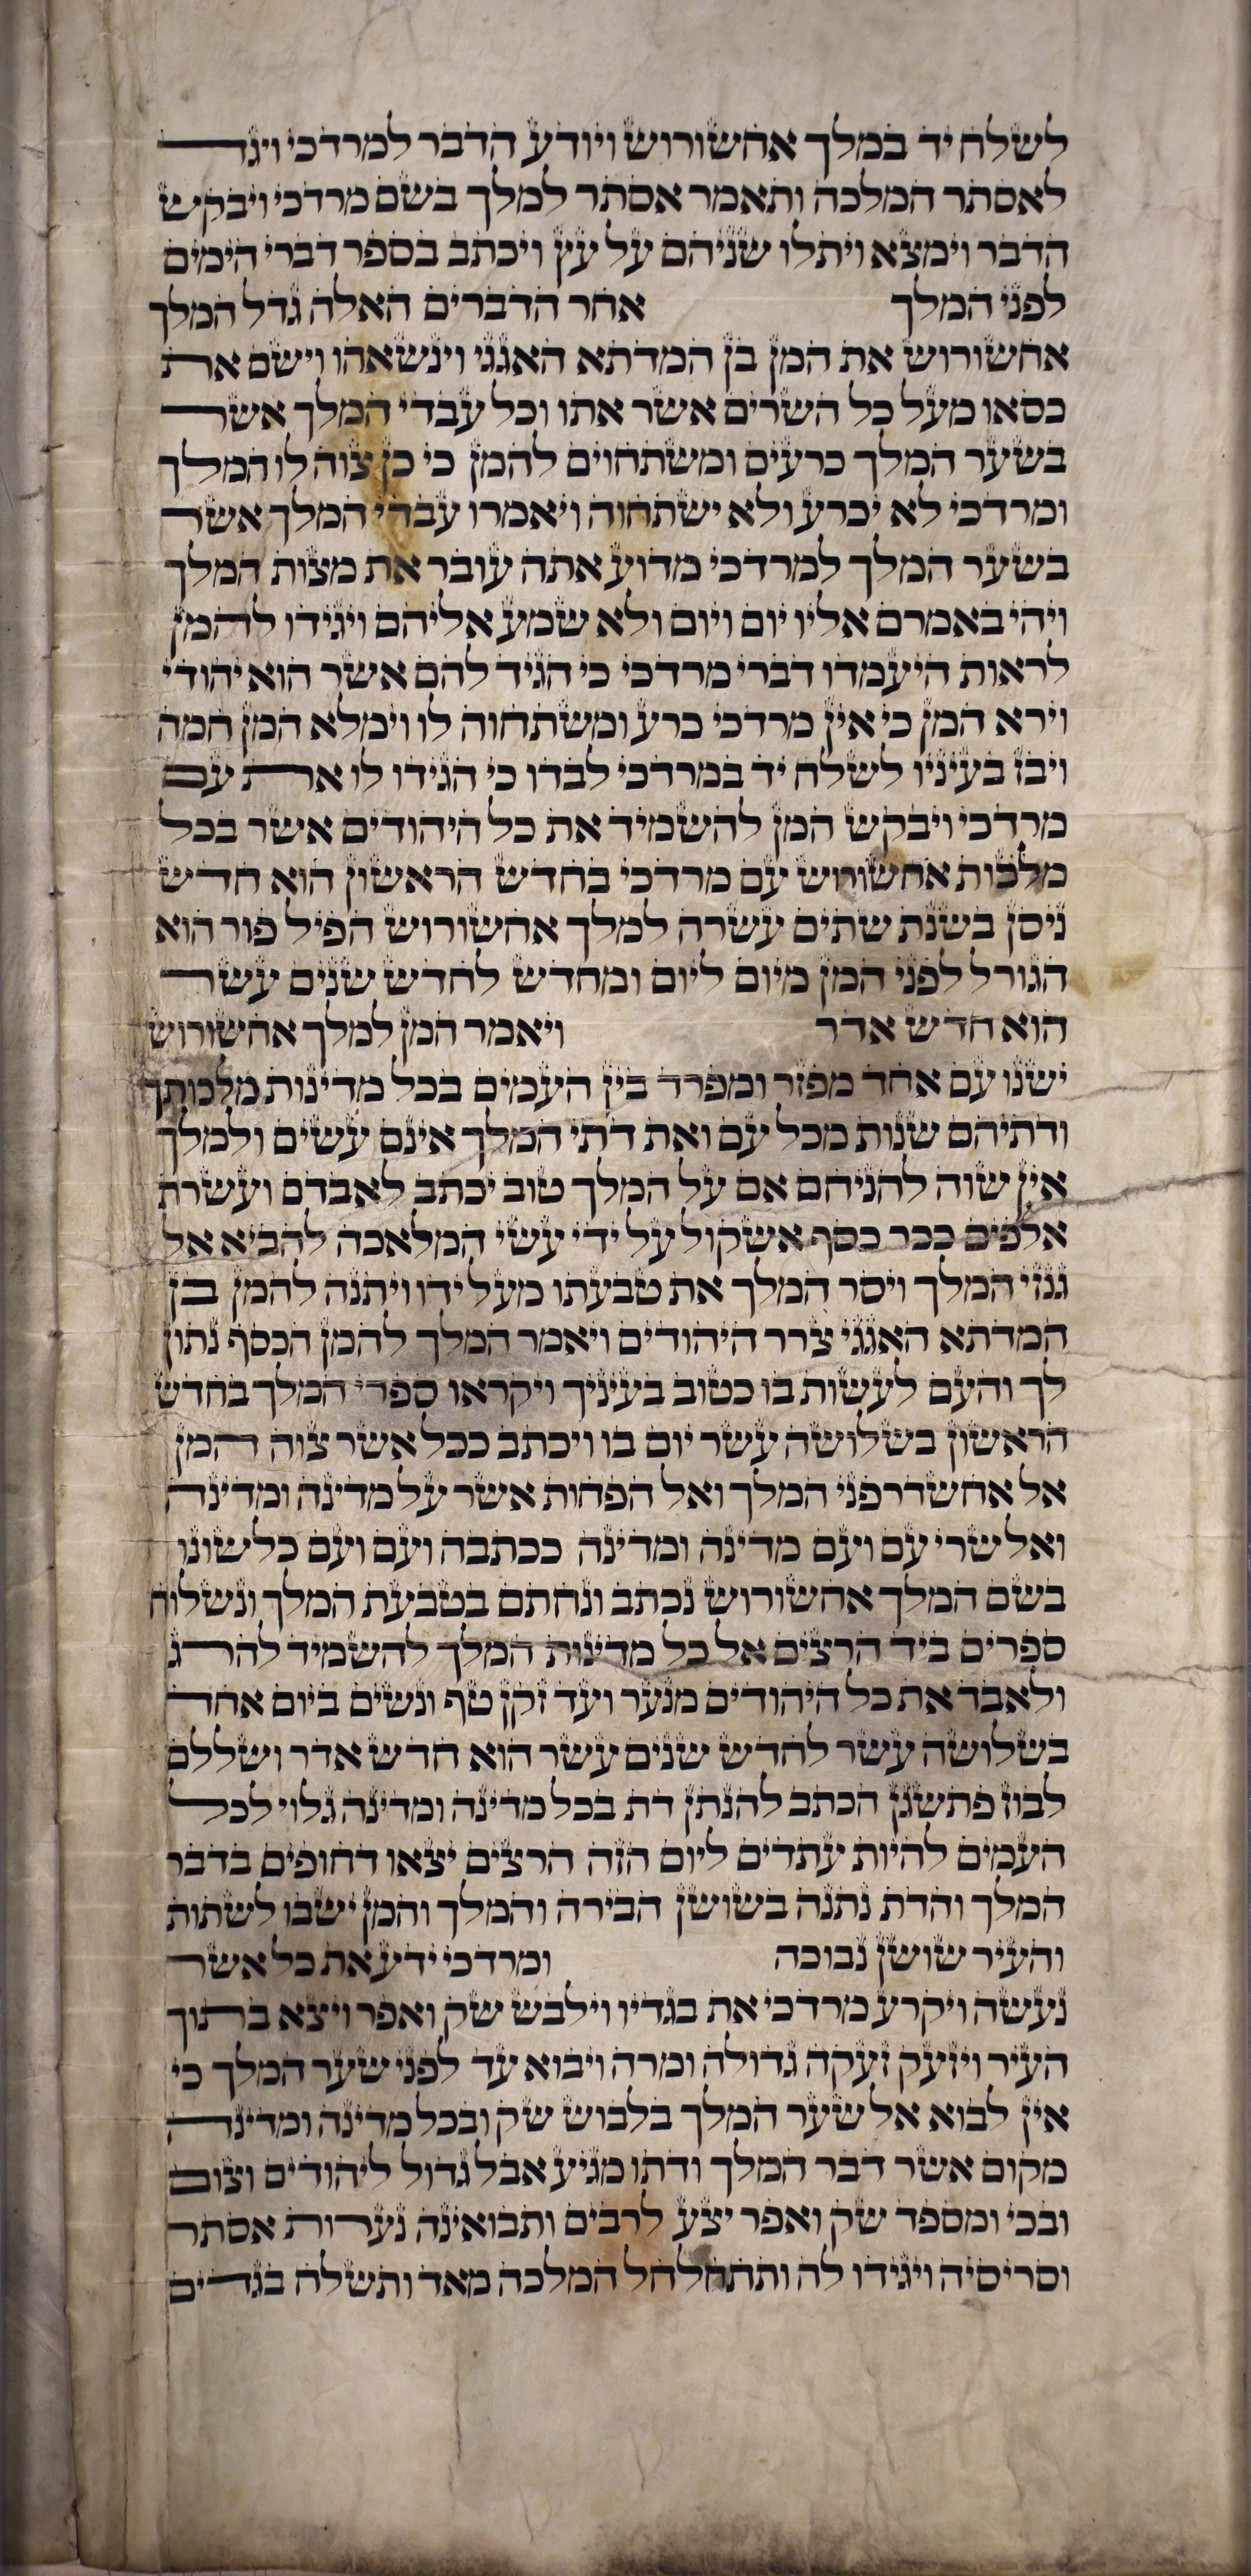 לשלח יד במלך אחשורוש ויודע הדבר למרדכי ויגד
לאסתר המלכה ותאמר אסתר למלך בשם מרדכי ויבקש
הדבר וימצא ויתלו שניהם על עץ ויכתב בספר דברי הימים
לפני המלך אחר הדברים האלה גדל המלך
אחשורוש את המן בן המדתא האגגי וינשאהו וישם את
כסאו מעל כל השרים אשר אתו וכל עבדי המלך אשר
בשער המלך כרעים ומשתחוים להמן כי כן צוה לו המלך
ומרדכי לא יכרע ולא ישתחוה ויאמרו עבדי המלך אשר
בשער המלך למרדכי מדוע אתה עובר את מצות המלך
ויהי באמרם אליו יום ויום ולא שמע אליהם ויגידו להמן
לראות היעמדו דברי מרדכי כי הגיד להם אשר הוא יהודי
וירא המן כי אין מרדכי כרע ומשתחוה לו וימלא המן חמה
ויבז בעיניו לשלח יד במרדכי לבדו כי הגידו לו את עם
מרדכי ויבקש המן להשמיד את כל היהודים אשר בכל
מלכות אחשורוש עם מרדכי בחדש הראשון הוא חדש
ניסן בשנת שתים עשרה למלך אחשורוש הפיל פור הוא
הגורל לפני המן מיום ליום ומחדש לחדש שנים עשר
הוא חדש אדר ויאמר המן למלך אחשורוש
ישנו עם אחד מפזר ומפרד בין העמים בכל מדינות מלכותך
ודתיהם שנות מכל עם ואת דתי המלך אינם עשים ולמלך
אין שוה להניחם אם על המלך טוב יכתב לאבדם ועשרת
אלפים ככר כסף אשקול על ידי עשי המלאכה להביא אל
גנזי המלך ויסר המלך את טבעתו מעל ידו ויתנה להמן בן
המדתא האגגי צרר היהודים ויאמר המלך להמן הכסף נתון
לך והעם לעשות בו כטוב בעיניך ויקראו ספרי המלך בחדש
הראשון בשלושה עשר יום בו ויכתב ככל אשר צוה המן
אל אחשדרפני המלך ואל הפחות אשר על מדינה ומדינה
ואל שרי עם ועם מדינה ומדינה ככתבה ועם ועם כלשונו
בשם המלך אחשורוש נכתב ונחתם בטבעת המלך ונשלוח
ספרים ביד הרצים אל כל מדינות המלך להשמיד להרג
ולאבד את כל היהודים מנער ועד זקן טף ונשים ביום אחד
בשלושה עשר לחדש שנים עשר הוא חדש אדר ושללם
לבוז פתשגן הכתב להנתן דת בכל מדינה ומדינה גלוי לכל
העמים להיות עתדים ליום הזה הרצים יצאו דחופים בדבר
המלך והדת נתנה בשושן הבירה והמלך והמן ישבו לשתות
והעיר שושן נבוכה ומרדכי ידע את כל אשר
נעשה ויקרע מרדכי את בגדיו וילבש שק ואפר ויצא בתוך
העיר ויזעק זעקה גדולה ומרה ויבוא עד לפני שער המלך כי
אין לבוא אל שער המלך בלבוש שק ובכל מדינה ומדינה
מקום אשר דבר המלך ודתו מגיע אבל גדול ליהודים וצום
ובכי ומספד שק ואפר יצע לרבים ותבואינה נערות אסתר
וסריסיה ויגידו לה ותתחלחל המלכה מאד ותשלח בגדים